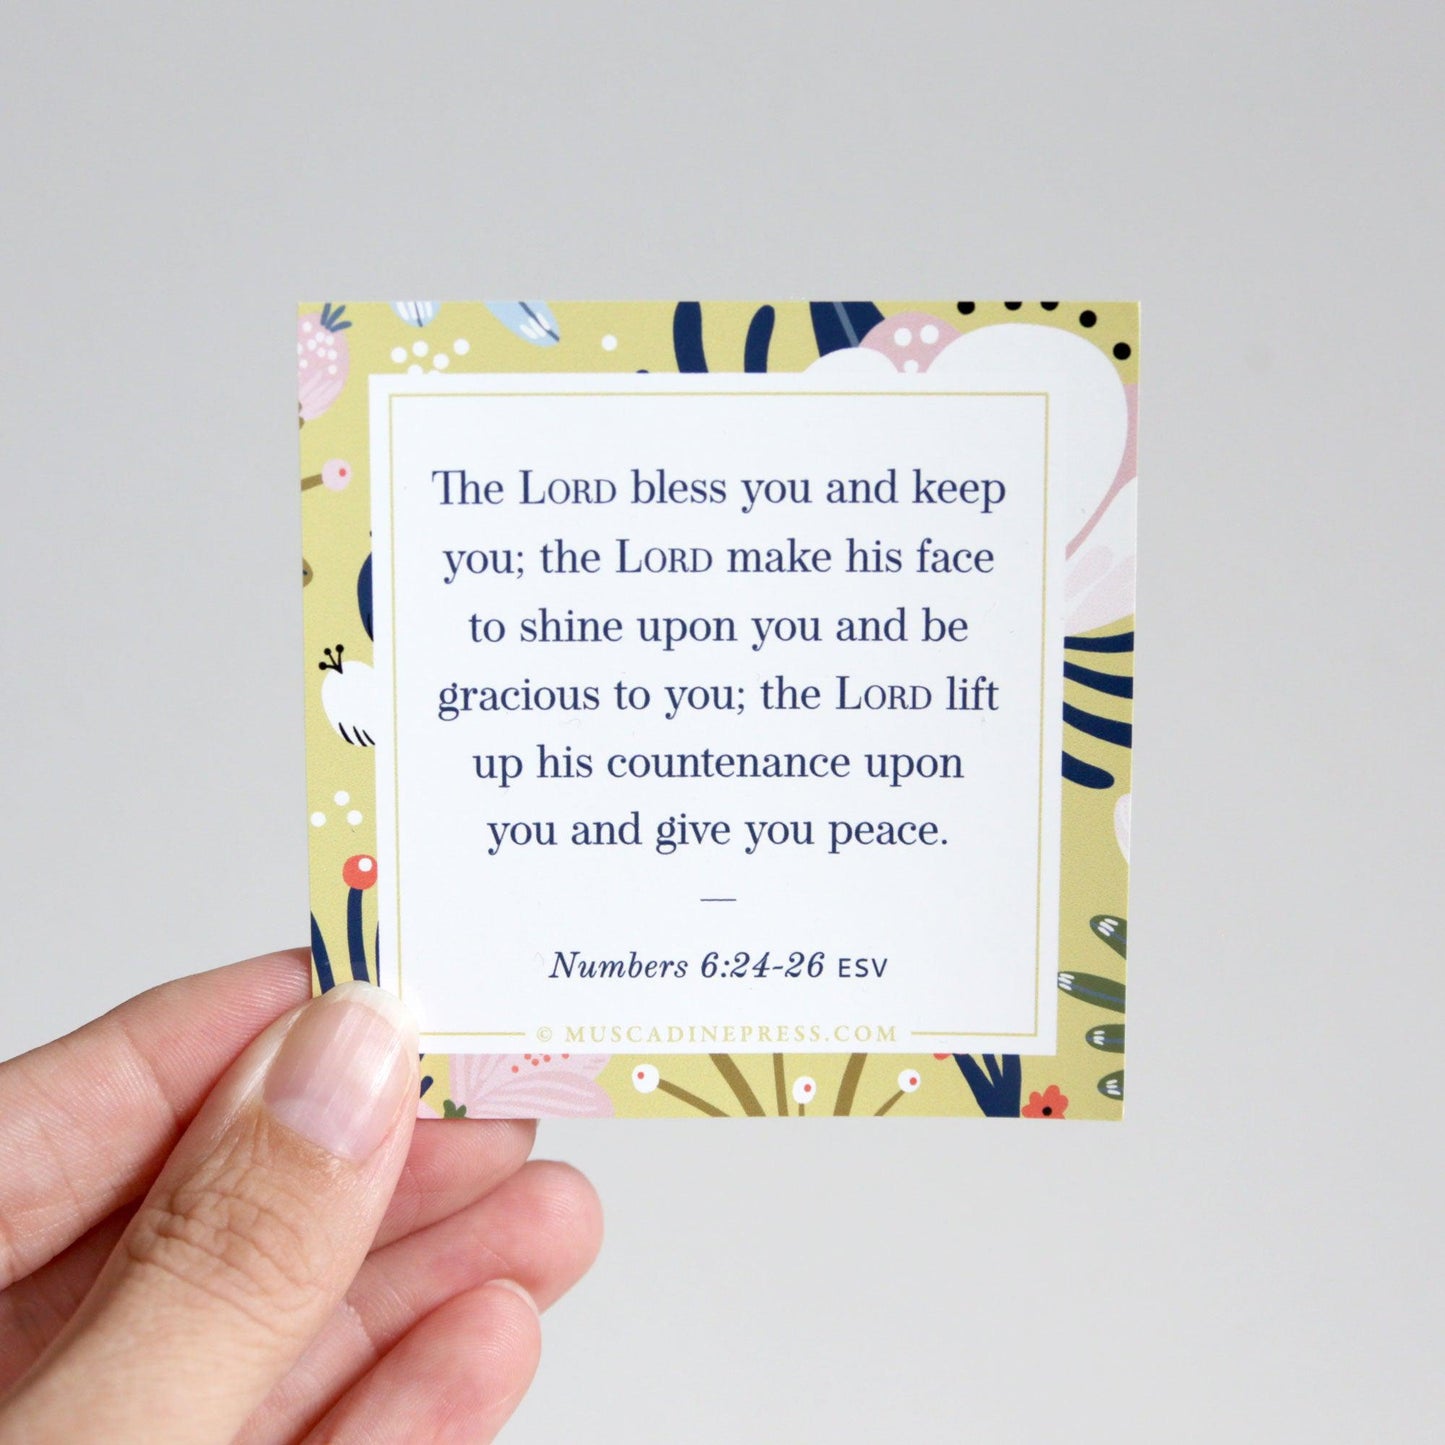 The LORD bless you and keep
you; the LORD make his face
to shine upon you and be
gracious to you; the LORD lift
up his countenance upon
you and give you peace.
—
Numbers 6:24-26 ESV
© MUSCADINEPRESS.COM